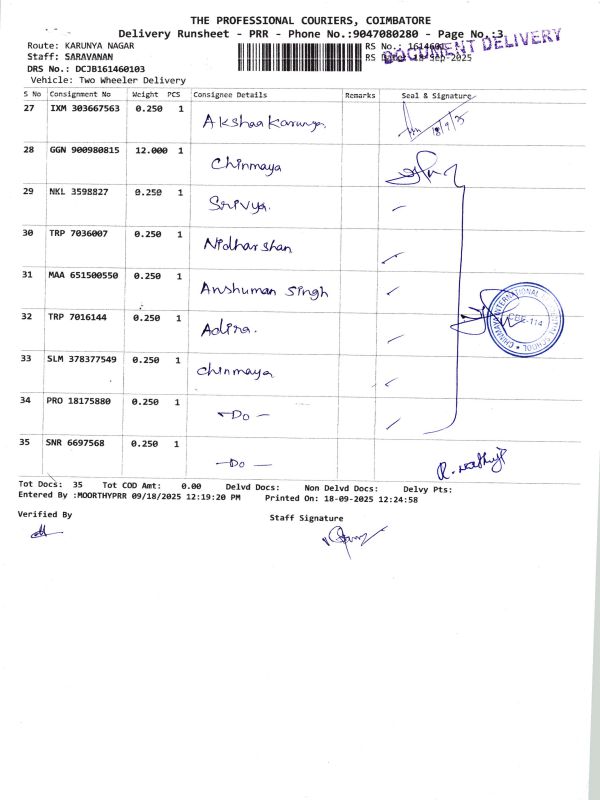 THE PROFESSIONAL COURIERS, COIMBATORE
Delivery Runsheet - PRR - Phone No.:9047080280 - Page No.:3
Route: KARUNYA NAGAR RS No.: 161460
DOCUMENT DELIVERY
Staff: SARAVANAN RS Date: 18-Sep-2025
DRS No.: DCJB161460103
Vehicle: Two Wheeler Delivery
S No Consignment No Weight PCS Consignee Details Remarks Seal & Signature
27 IXM 303667563 0.250 1 Akshaa Karunya. 18/9/25
28 GGN 900980815 12.000 1 Chinmaya
29 NKL 3598827 0.250 1 Srivya.
30 TRP 7036007 0.250 1 Nidharshan
31 MAA 651500550 0.250 1 Anshuman Singh
32 TRP 7016144 0.250 1 Adira.
CHINMAYA INTERNATIONAL RESIDENTIAL SCHOOL
CBE-114
33 SLM 378377549 0.250 1 Chinmaya
34 PRO 18175880 0.250 1 -Do-
35 SNR 6697568 0.250 1 -Do-
Tot Docs: 35 Tot COD Amt: 0.00 Delvd Docs: Non Delvd Docs: Delvy Pts:
Entered By :MOORTHYPRR 09/18/2025 12:19:20 PM Printed On: 18-09-2025 12:24:58
Verified By Staff Signature